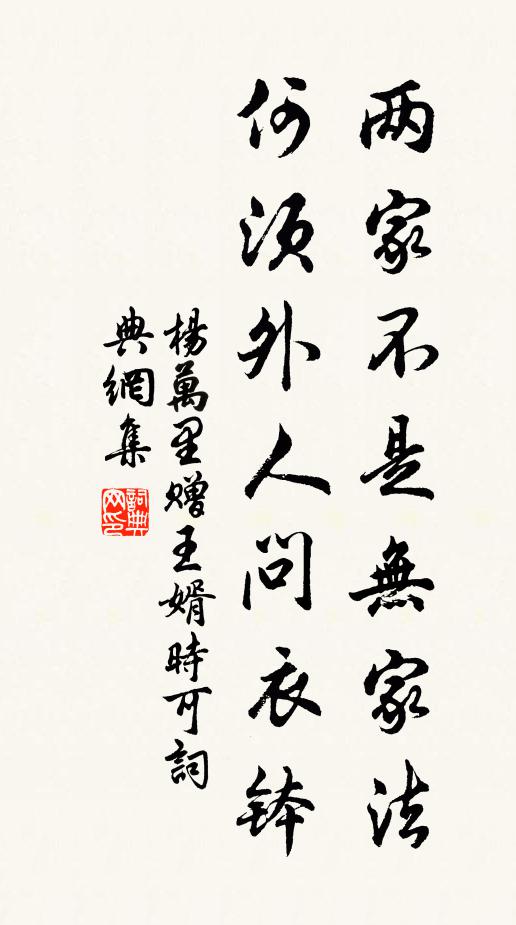 两家不是無家法
何須外人問衣鉢
楊萬里贈王婿時可詞
典網集
詞典网印